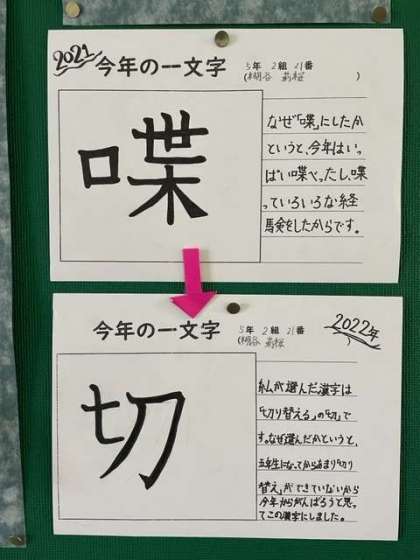 2021
今年の一文字
5年 2組 21番
喋
なぜ「喋」にしたか
というと、今年はいっ
ぱい喋べったし、喋
っていろいろな経
験をしたからです。
今年の一文字
5年 2組 21番
2022年
切
私が選んだ漢字は
「切り替える」の「切」で
す。なぜ選んだかというと、
五年生になってからあまり「切り
替え」ができていないから
今年からがんばろうと思っ
てこの漢字にしました。